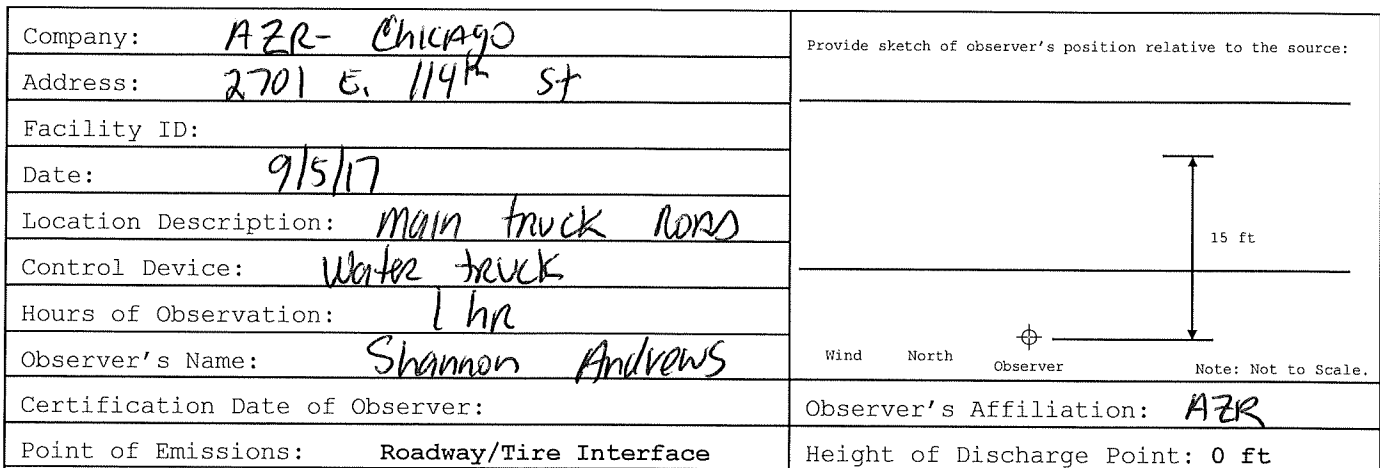 Company: AZR- Chicago
Address: 2701 E. 114th St
Facility ID:
Date: 9/5/17
Location Description: Main truck ROAD
Control Device: Water truck
Hours of Observation: 1 hr
Observer's Name: Shannon Andrews
Certification Date of Observer:
Point of Emissions: Roadway/Tire Interface
Provide sketch of observer's position relative to the source:
15 ft
Wind North Observer Note: Not to Scale.
Observer's Affiliation: AZR
Height of Discharge Point: 0 ft